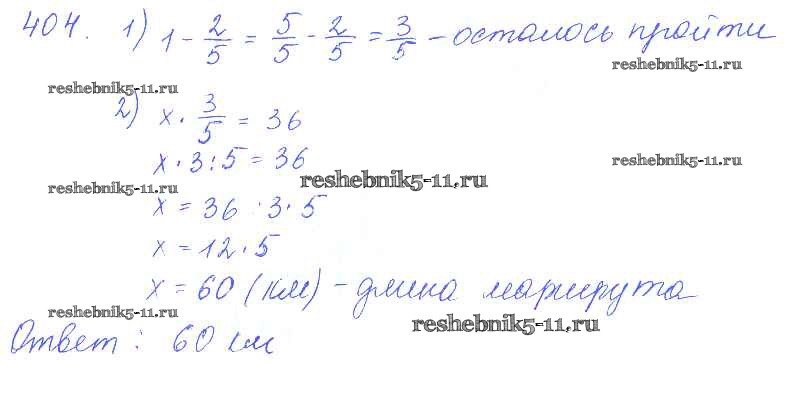 404. 1) 1 - 2/5 = 5/5 - 2/5 = 3/5 - осталось пройти
reshebnik5-11.ru
reshebnik5-11.ru
2) x · 3/5 = 36
x · 3 : 5 = 36
reshebnik5-11.ru
reshebnik5-11.ru
reshebnik5-11.ru
x = 36 · 3 · 5
x = 12 · 5
x = 60 (км) - длина маршрута
reshebnik5-11.ru
reshebnik5-11.ru
Ответ: 60 км